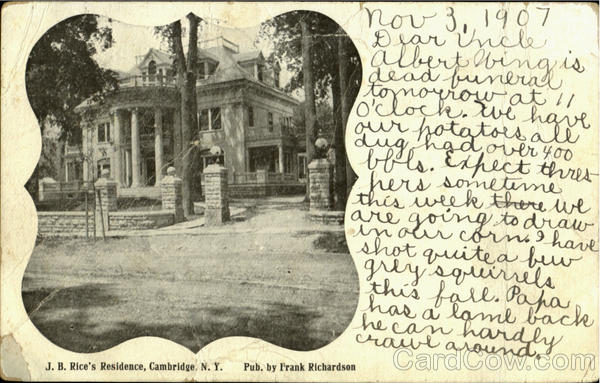 Nov 3, 1907
Dear Uncle
Albert Wing is
dead funeral
tomorrow at 11
O'clock. We have
our potatoes all
dug had over 400
bbls. Expect thres-
hers sometime
this week there we
are going to draw
in our corn. I have
shot quite a fuw
grey squirrels
this fall. Papa
has a lame back
he can hardly
crawl around.
J. B. Rice's Residence, Cambridge, N. Y. Pub. by Frank Richardson
CardCow.com